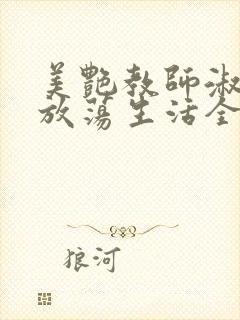 美艷教師淑
放蕩生活全
狼河